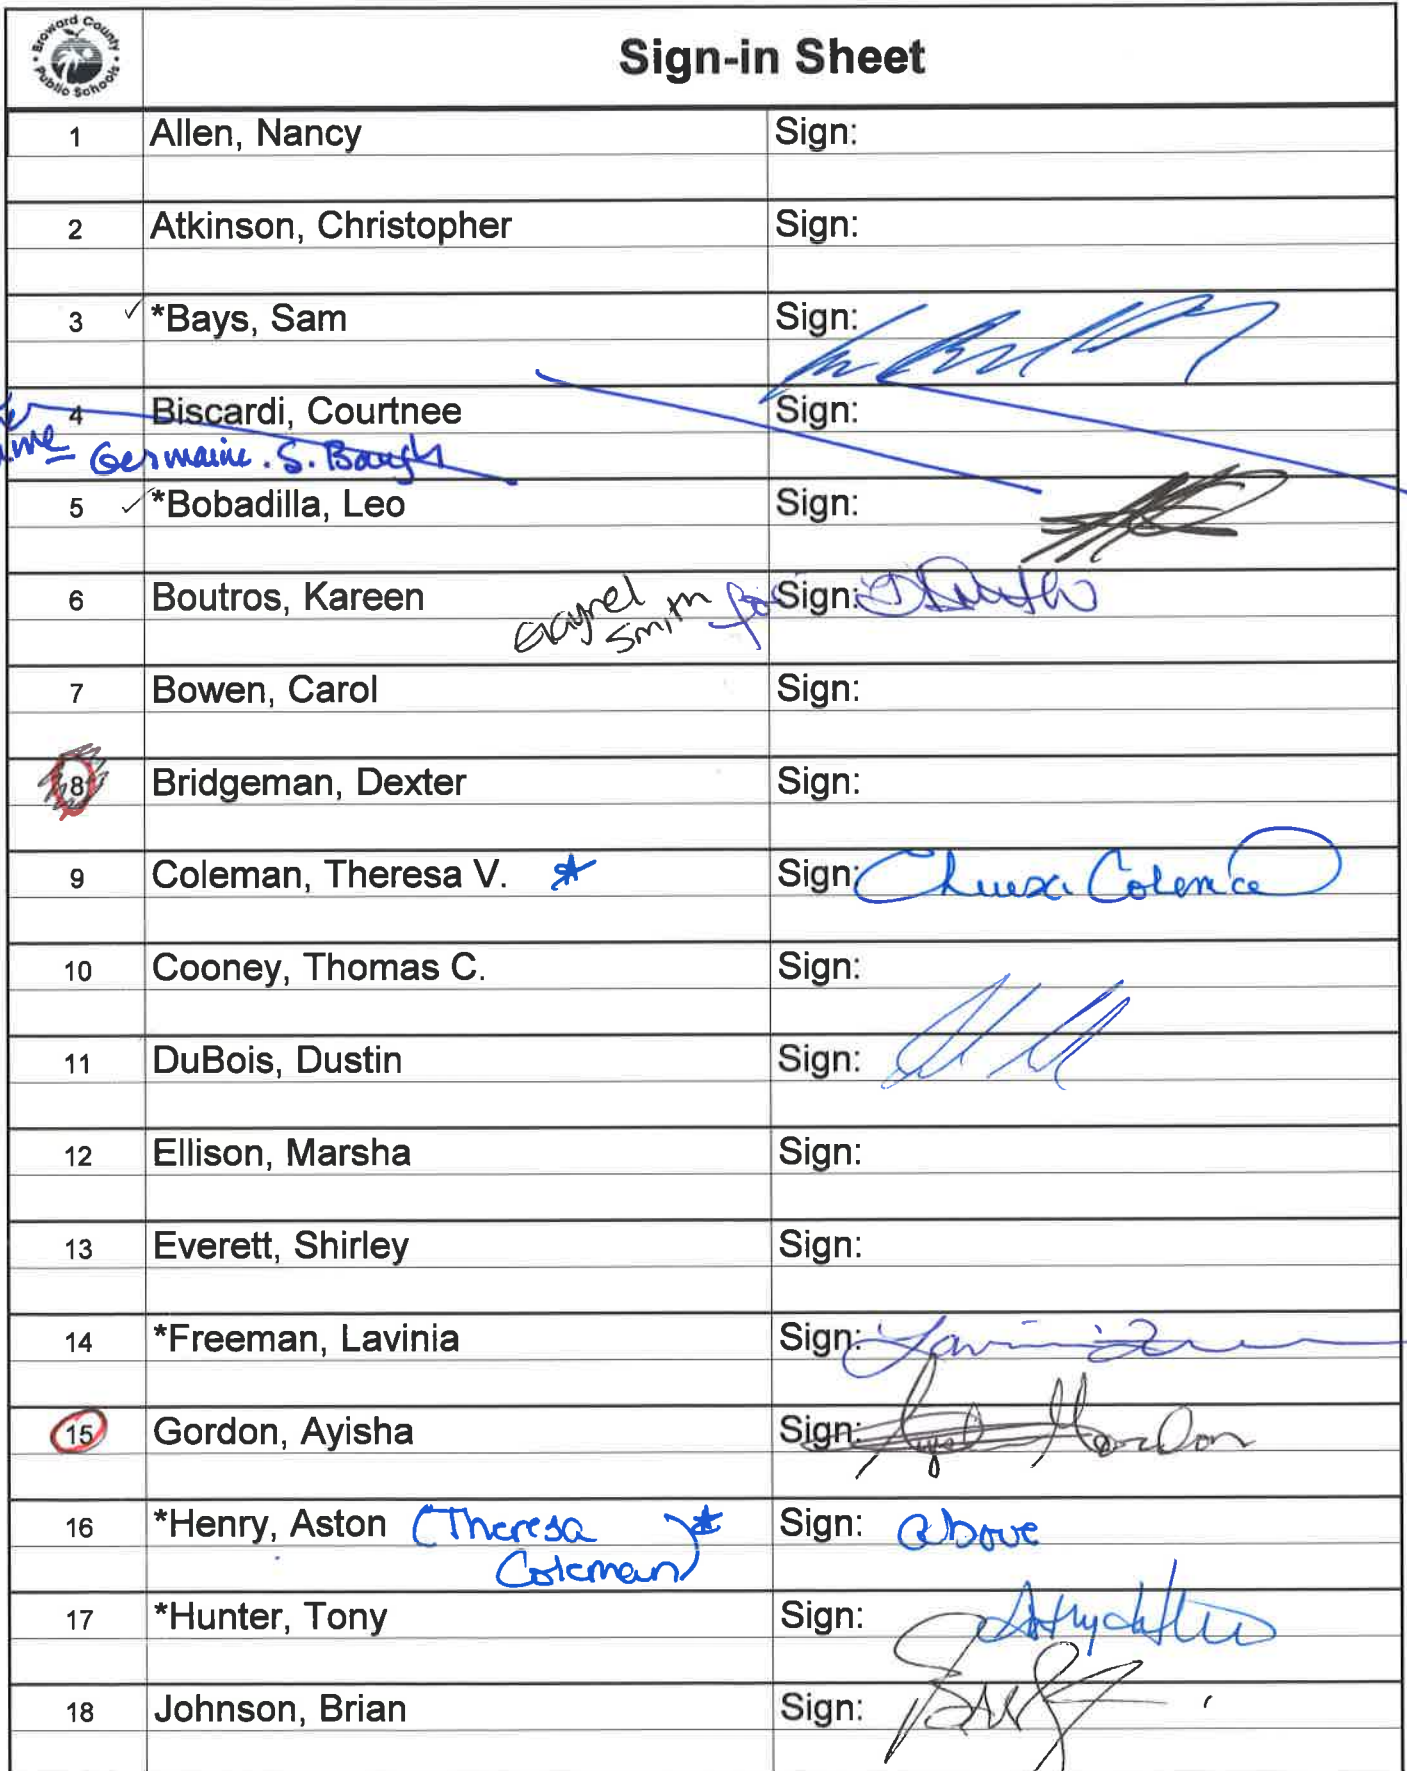 Broward County
Public Schools
Sign-in Sheet
1 Allen, Nancy Sign:
2 Atkinson, Christopher Sign:
3 ✓ *Bays, Sam Sign:
4 Biscardi, Courtnee Sign:
Germaine. S. Baugh
5 ✓ *Bobadilla, Leo Sign:
6 Boutros, Kareen Gaynel Smith for Sign: G Smith
7 Bowen, Carol Sign:
8 Bridgeman, Dexter Sign:
9 Coleman, Theresa V. * Sign: Theresa Coleman
10 Cooney, Thomas C. Sign:
11 DuBois, Dustin Sign:
12 Ellison, Marsha Sign:
13 Everett, Shirley Sign:
14 *Freeman, Lavinia Sign: Lavinia
15 Gordon, Ayisha Sign: Gordon
16 *Henry, Aston (Theresa * Sign: above
Coleman)
17 *Hunter, Tony Sign:
18 Johnson, Brian Sign: